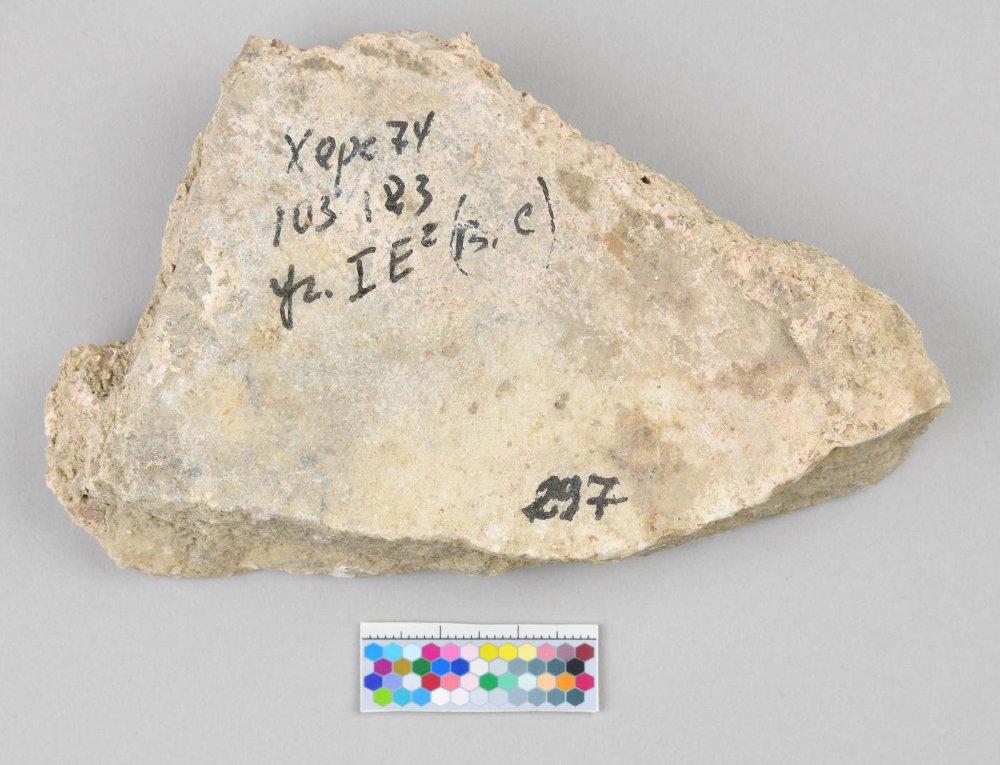 Херс 74
103 183
уг. I E² (В, С)
297